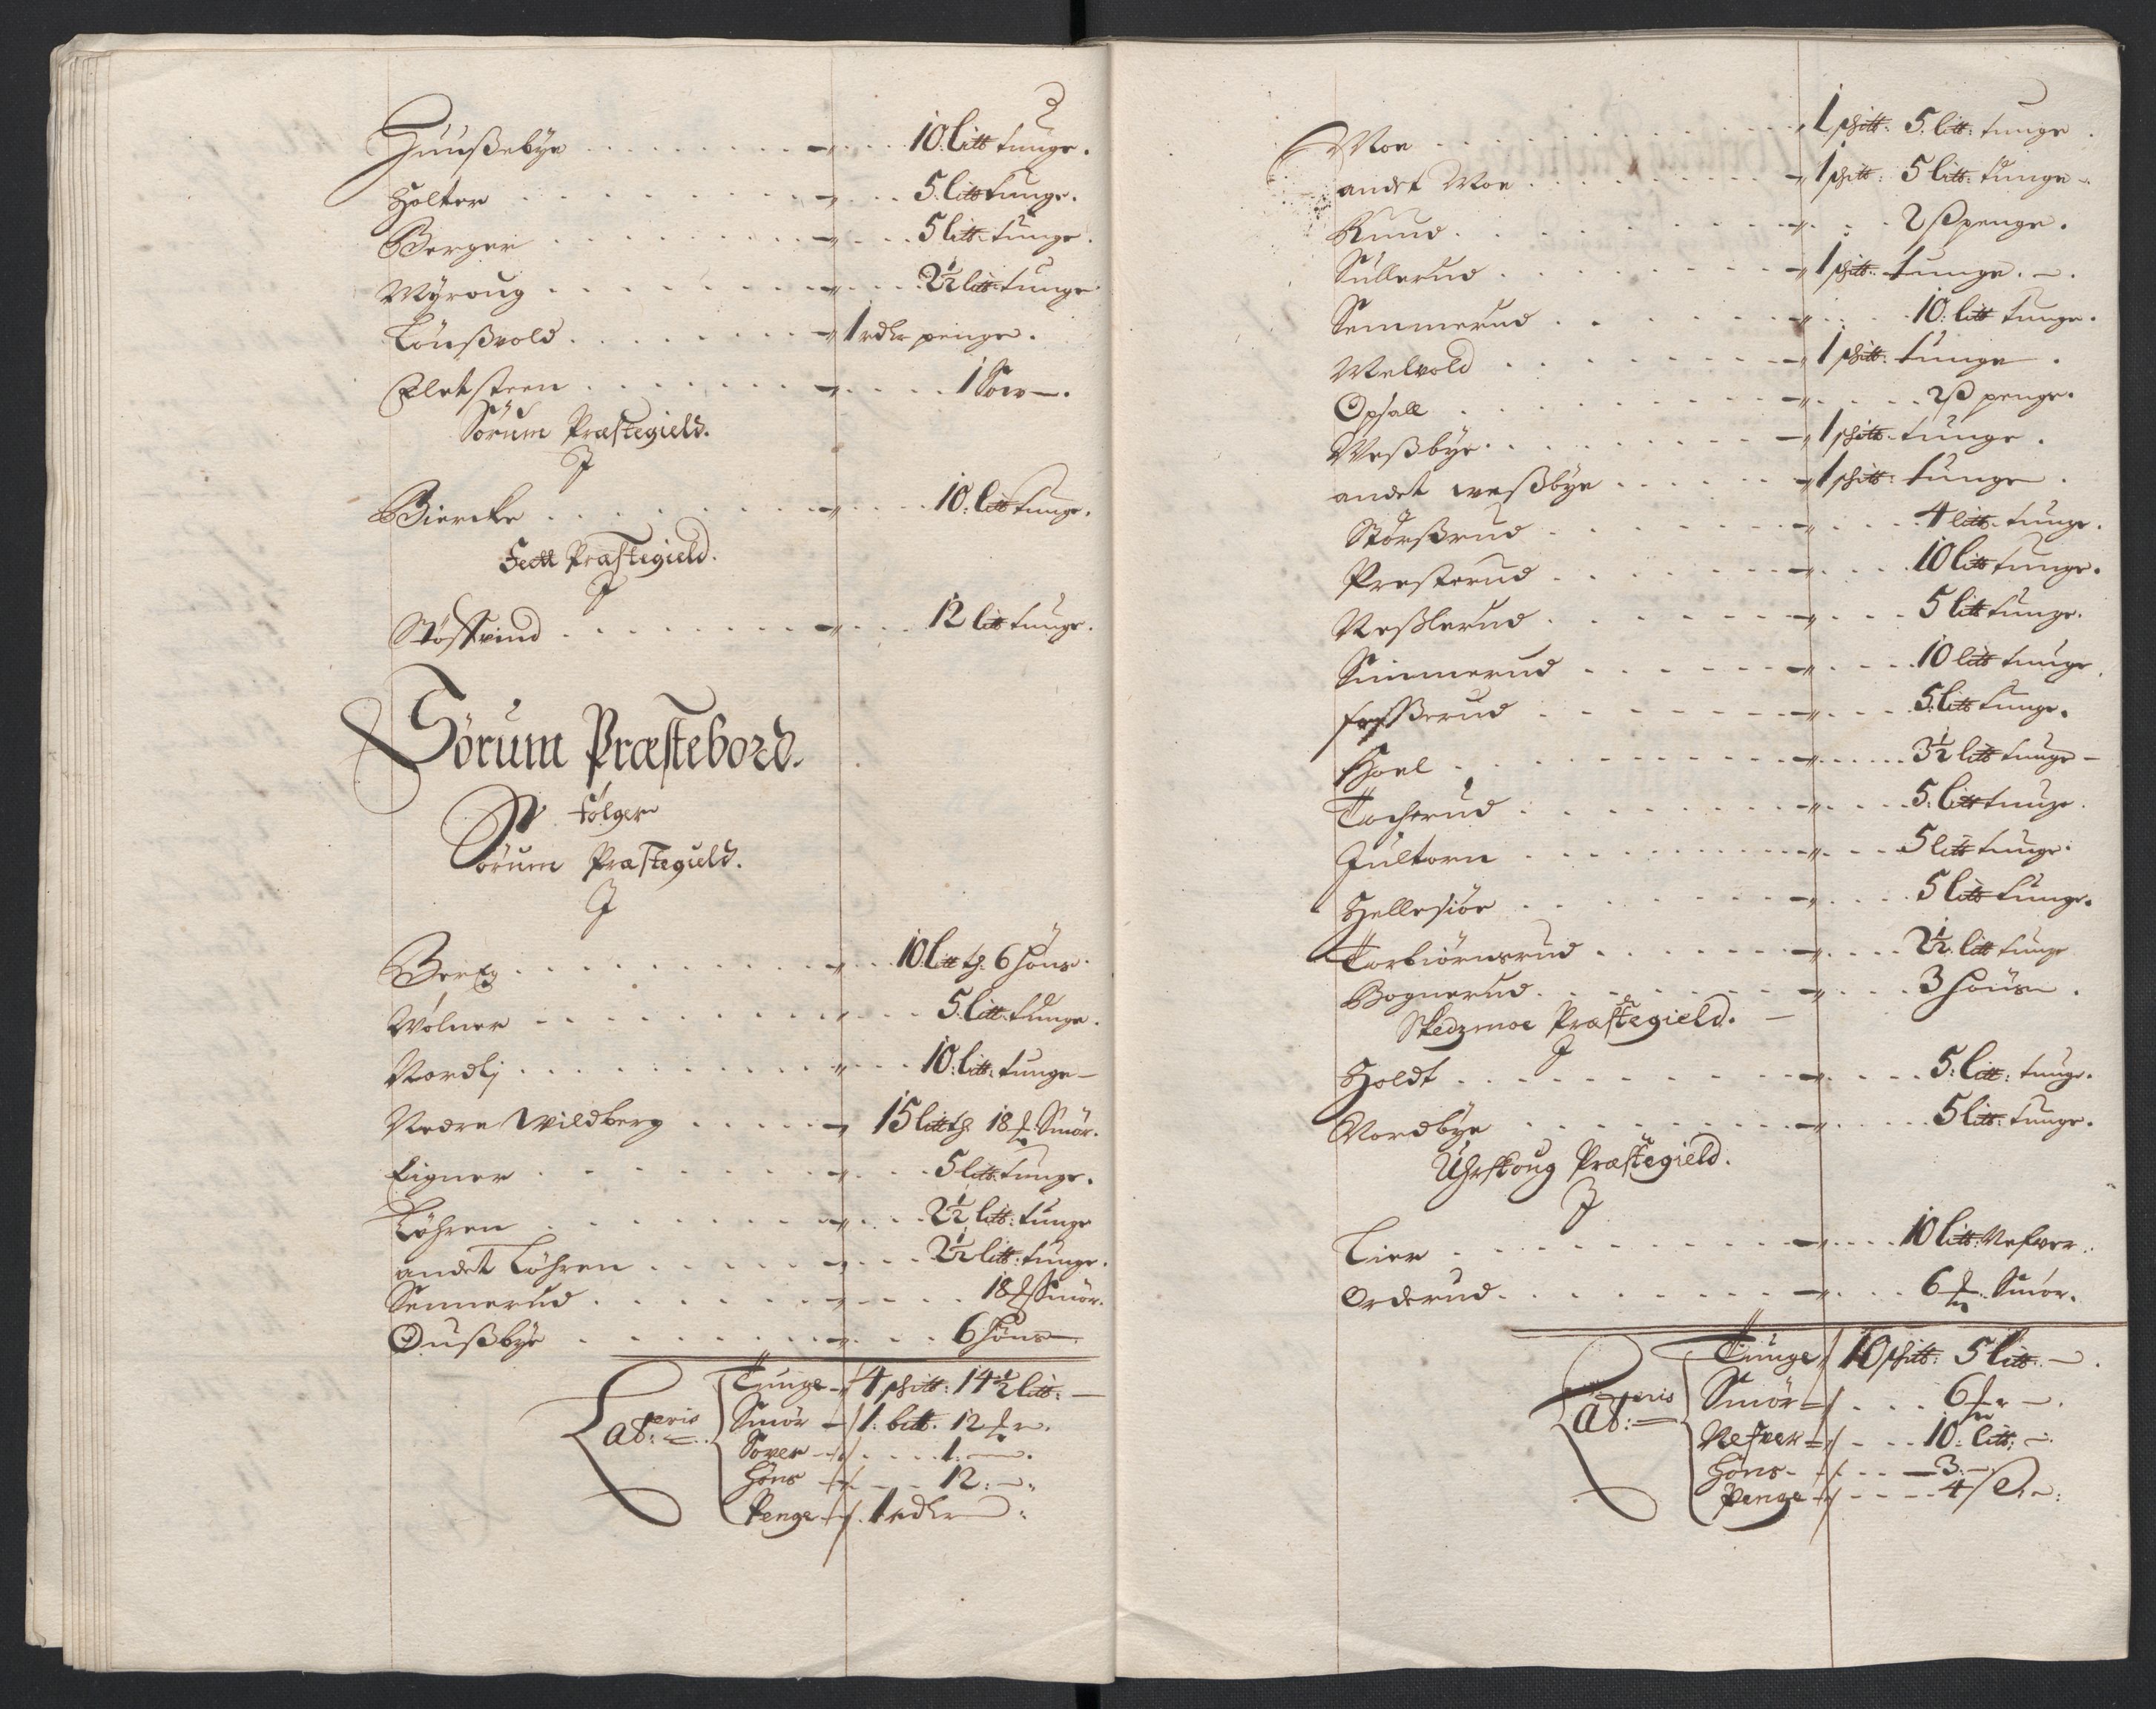 Huußebye - 10: Litt tunge.
Holter - 5: Litt tunge.
Berger - 5 litt tunge.
Myroug - 2½ litt tunge
Lonßvold - 1 rdlr penge.
Eletsteen - 1 Sow
Sørum Præstegield.
J
Biercke - 10: Litt tunge.
Fett Præstegield.
J
- 12 litt tunge.
Sørum Præstebord.
følger
Sørum Præstegield.
J
Berg - 10 Litt tg. 6 høns.
Wølner - 5: Litt tunge.
Nordlj - 10: Litt: tunge
Nedre Wildberg - 15 litt tg 18 Smör.
Eigner - 5 litt tunge.
Løhren - 2½ litt: tunge
andet Løhren - 2½ litt: tunge.
Sennerud - 18 Smör.
Oußbye - 6 høns
Lateris
Tunge - 4 skitt: 14½ litt:
Smör - 1: bitt. 12
Sover - 1:
Høns - 12:
Penge - 1 rdlr
Moe - 1 skitt: 5: litt: tunge.
andet Moe - 1 skitt: 5 litt: tunge
Ruud - 2 ß penge.
Sullerud - 1 skitt: tunge.
Semmerud - 10: litt tunge.
Melvold - 1 skitt: tunge.
Opsall - 2 ß penge.
Weßbye - 1 skitt: tunge.
andet weßbye - 1 skitt: tunge.
Størßrud - 4 litt: tunge.
Presterud - 10 Litt tunge.
Neßlerud - 5 litt tunge.
Simmerud - 10 litt tunge.
- 5: Litt tunge.
Hoel - 3½ litt tunge
Tocherud - 5: Litt tunge.
Jultorn - 5 litt tunge.
Hellesiøe - 5 Litt tunge.
Torbiørnsrud - 2½ litt tunge
Bognerud - 3 høns.
Skedzmoe Præstegield.
J
Holdt - 5: Litt: tunge.
Nordbye - 5 litt: tunge.
Uhrskoug Præstegield.
J
Lier - 10 Litt: Nefver.
Orderud - 6 Smör.
Lateris
Tunge - 10 skitt: 5 litt
Smör - 6
Nefver - 10: Litt:
Høns - 3:
Penge - 4 ß